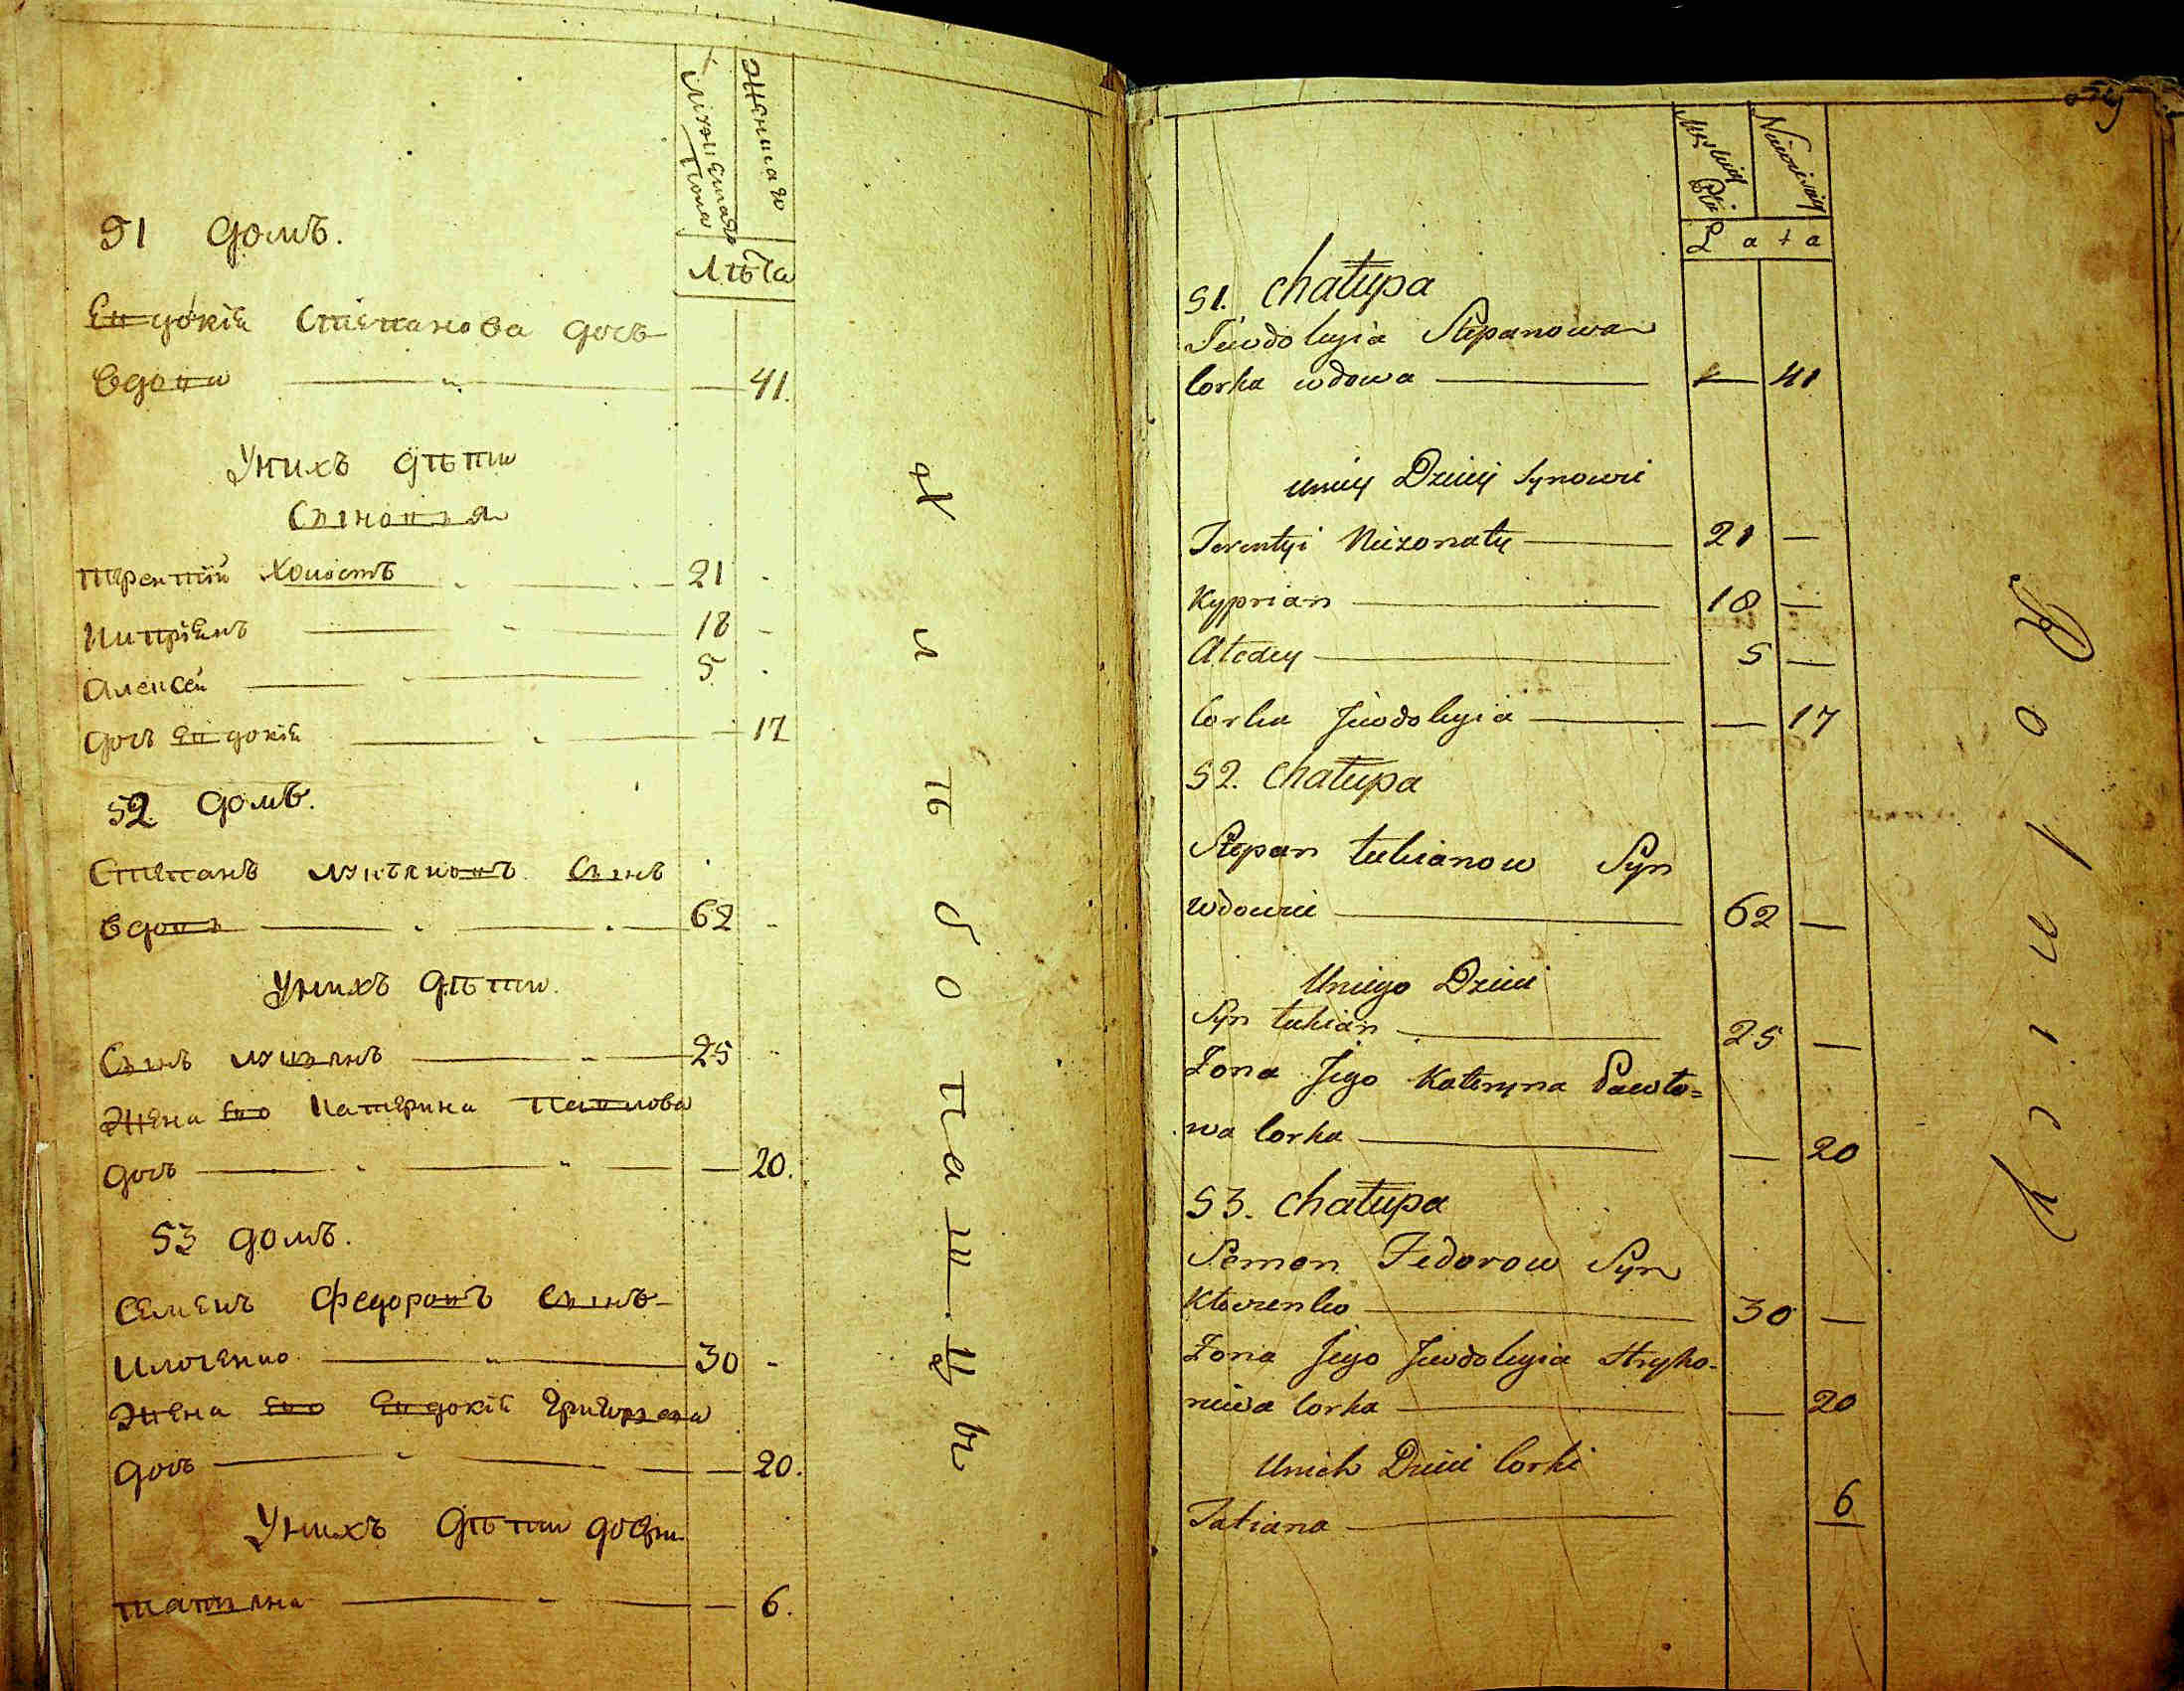 Мужеска Пола
Женска
Лѣта
51 домъ.
Евдокіи Степанова дочь
вдова 41.
У нихъ дѣти
Сыновья
Терентій холостъ 21
Кипріянъ 18
Алексей 5
дочь Евдокіи 17
52 домъ.
Степанъ Лукьяновъ сынъ
вдовъ 62
У нихъ дѣти.
Сынъ Лукьянъ 25
Жена ево Катерина Павлова
дочь 20.
53 домъ.
Семенъ Федоровъ сынъ
Клоченко 30
Жена ево Евдокіи Григорьева
дочь 20.
У нихъ дѣти дочери
Татьяна 6.
хлѣбопашцы
Męskiey Płci
Niewieściey
Lata
51. Chałupa
Jewdokyia Stepanowa
Corka wdowa — 41
Uniey Dzieci Synowie
Terentyi Nieżonaty 21 —
Kypryan 18 —
Corka Jewdokyia — 17
52. Chałupa
Stepan Łukianow Syn
Wdowiec 62 —
Uniego Dzieci
Syn Łukian 25 —
Żona Jego Kateryna Pawło=
wa Corka — 20
53. Chałupa
Semen Fedorow Syn
Kloczenko 30 —
Żona Jego Jewdokyia Hryho-
riewa Corka — 20
Unich Dzieci Corki
Tatiana 6
Rolnicy